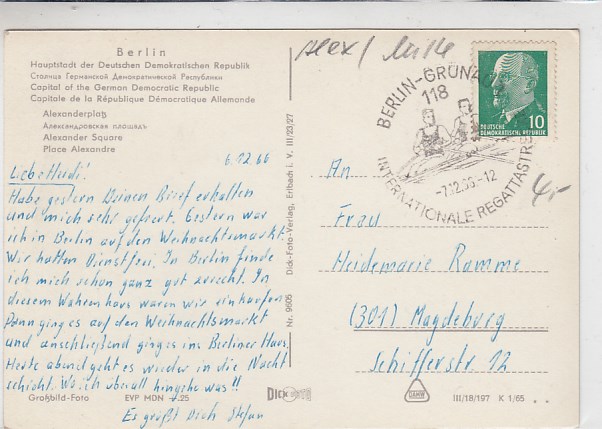 Berlin
Hauptstadt der Deutschen Demokratischen Republik
Столица Германской Демократической Республики
Capital of the German Democratic Republic
Capitale de la République Démocratique Allemande
Alexanderplatz
Александровская площадь
Alexander Square
Place Alexandre
6.12.66
Liebe Heidi!
Habe gestern Deinen Brief erhalten
und mich sehr gefreut. Gestern war
ich in Berlin auf den Weihnachtsmarkt.
Wir hatten Dienstfrei. In Berlin finde
ich mich schon ganz gut zurecht. In
diesem Warenhaus waren wir einkaufen
Dann ging es auf den Weihnachtsmarkt
und anschließend ging es ins Berliner Haus.
Heute abend geht es wieder in die Nacht
schicht. Wo ich überall hingehe was!!
Es grüßt Dich Stefan
Großbild-Foto EVP MDN -.25
Dick-Foto-Verlag, Erlbach i. V. III/23/27
Nr. 9605
DICK
Alex / Mitte
BERLIN-GRÜNAU
118
-7.12.66-12
INTERNATIONALE REGATTASTRE
10
DEUTSCHE
DEMOKRATISCHE REPUBLIK
4,-
An
Frau
Heidemarie Ramme
(301) Magdeburg
Schifferstr. 12
III/18/197 K 1/65